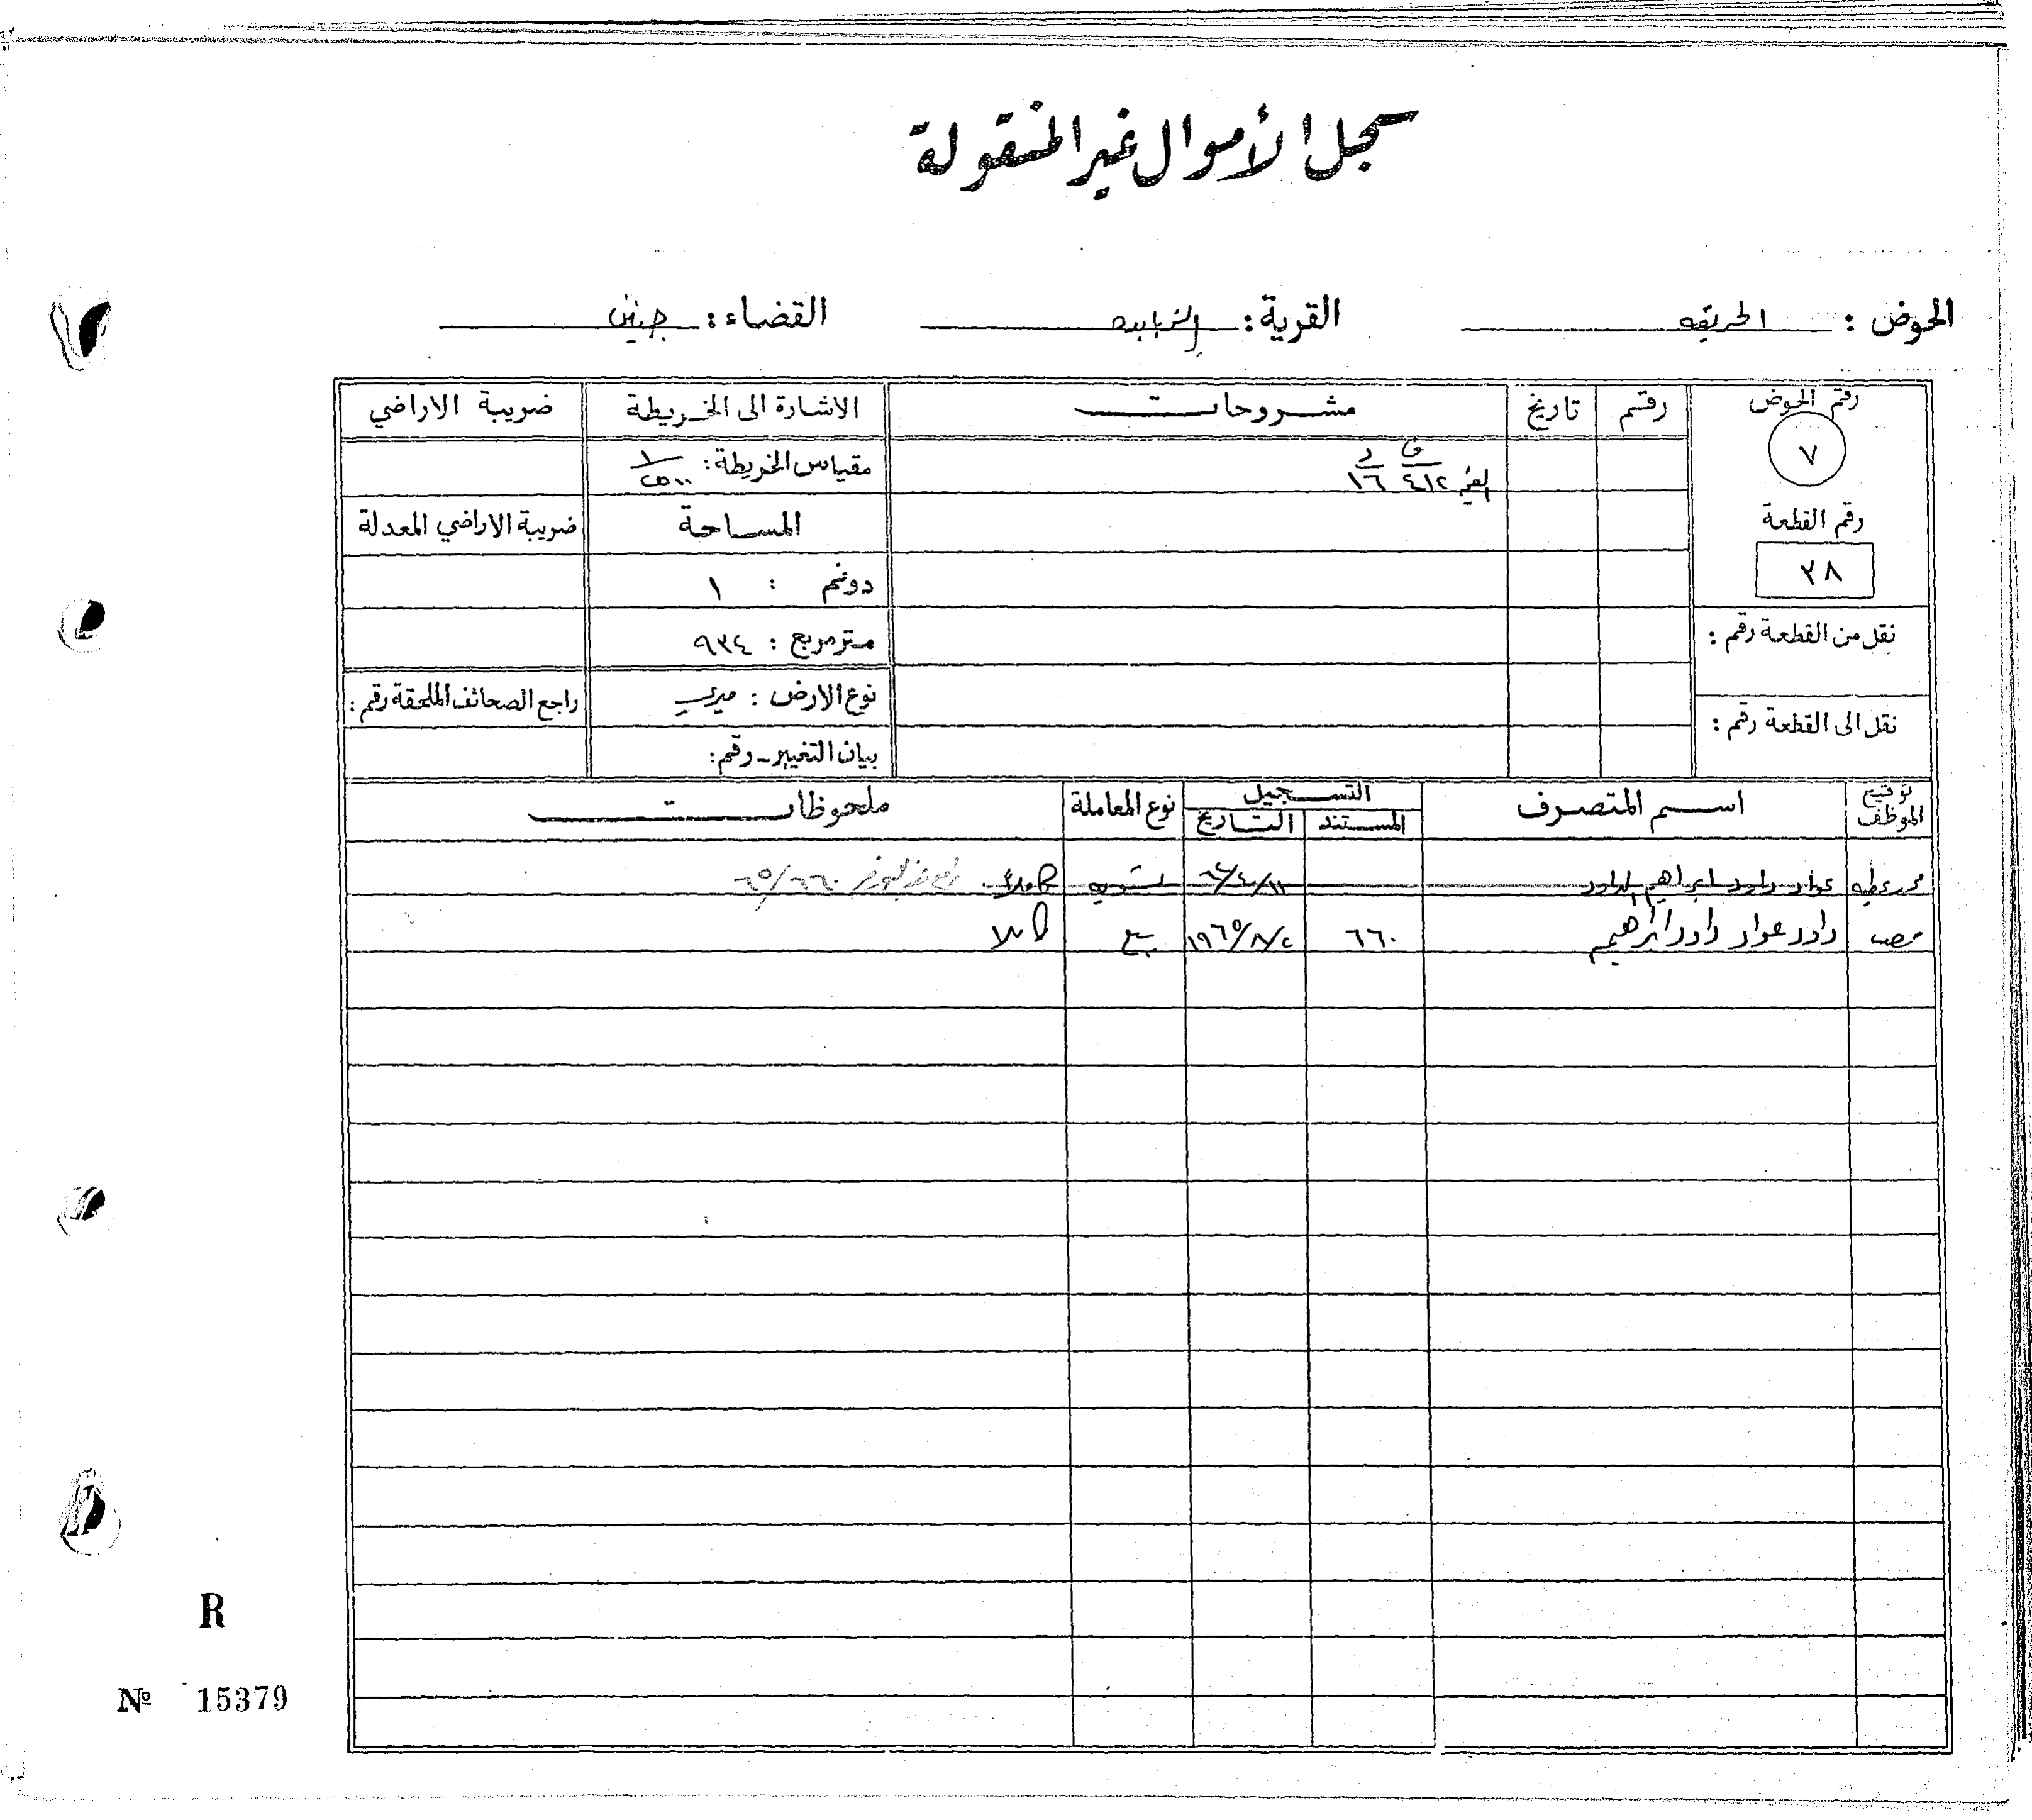 سجل الأموال غير المنقولة
الحوض : الحريقه القرية : الزبابده القضاء : جنين
رقم الحوض رقم تاريخ مشروحات الاشارة الى الخريطة ضريبة الاراضي
٧ ق د مقياس الخريطة : ١
٤١٢ ١٦ ٢٥٠٠
رقم القطعة المساحة ضريبة الاراضي المعدلة
٣٨ دونم : ١
نقل من القطعة رقم : متر مربع : ٩٣٤
نوع الارض : ميري راجع الصحائف الملحقة رقم :
نقل الى القطعة رقم : بيان التغيير - رقم :
توقيع الموظف اسم المتصرف التسجيل نوع المعاملة ملحوظات
المستند التاريخ
عواد داود ابراهيم الداود تسويه كاملاً ٦٥/٦٦٠
داود عواد داود ابراهيم ٦٦٠ ١٩٦٥/٨/٢ بيع كاملا
R
Nº 15379